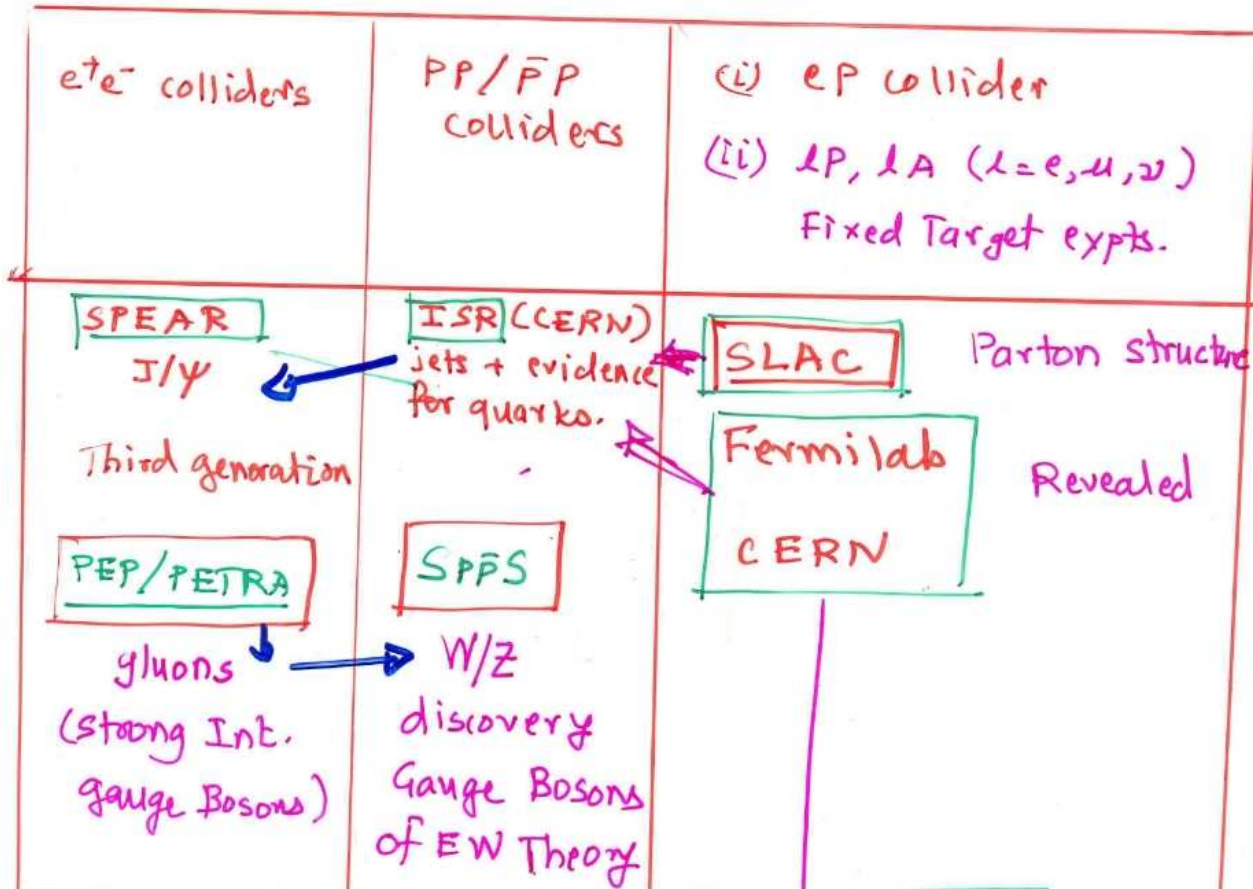 e⁺e⁻ colliders
PP/P̄P
colliders
(i) eP collider
(ii) lP, lA (l=e,μ,ν)
Fixed Target expts.
SPEAR
J/ψ
Third generation
PEP/PETRA
gluons
(strong Int.
gauge Bosons)
ISR (CERN)
jets + evidence
for quarks.
SPP̄S
W/Z
discovery
Gauge Bosons
of EW Theory
SLAC Parton structure
Fermilab Revealed
CERN